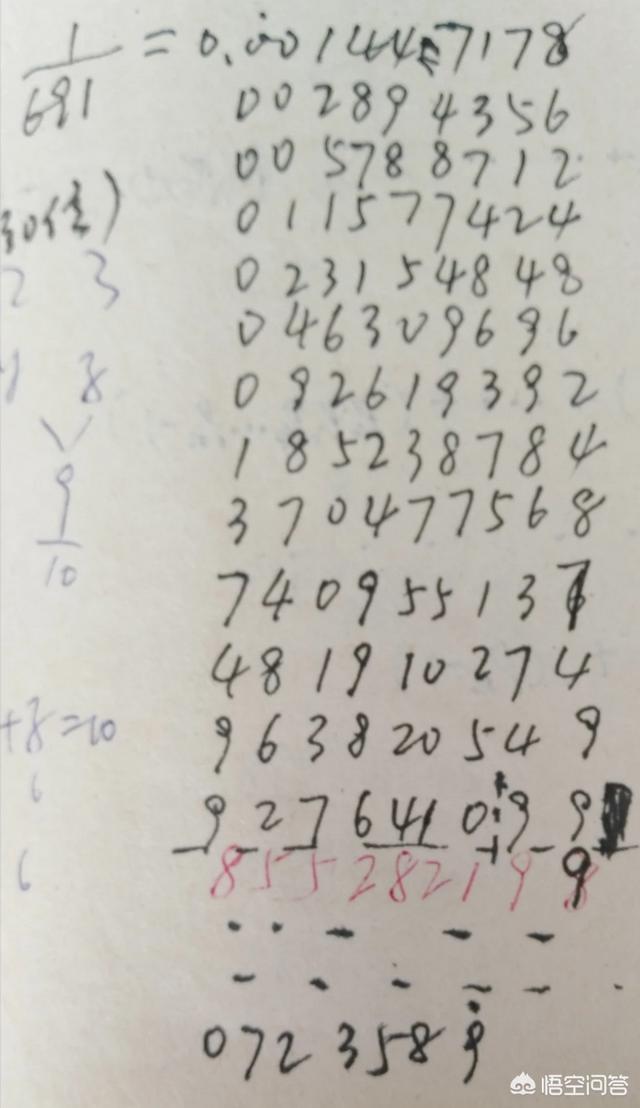 1
— = 0.001447178
691
002894356
005788712
)
011577424
2 3
023154848
046309696
8
092619392
185238784
9
—
10
370477568
740955137
481910274
+8=10
963820549
6
927641099
6
855282199
0723589
悟空问答